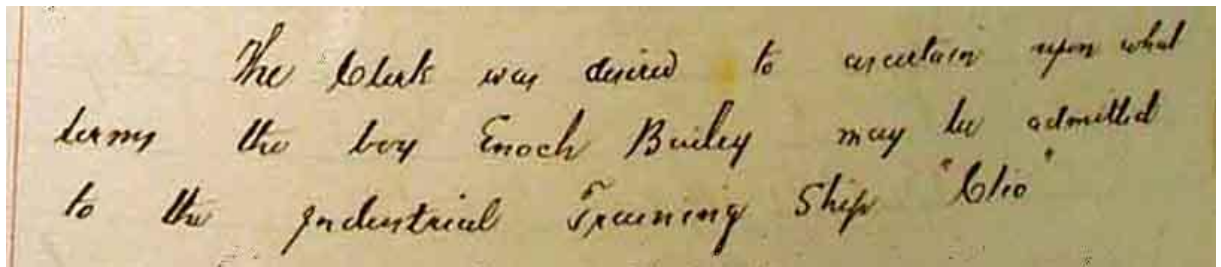 The Clerk was desired to ascertain upon what
terms the boy Enoch Bailey may be admitted
to the Industrial Training Ship "Clio"